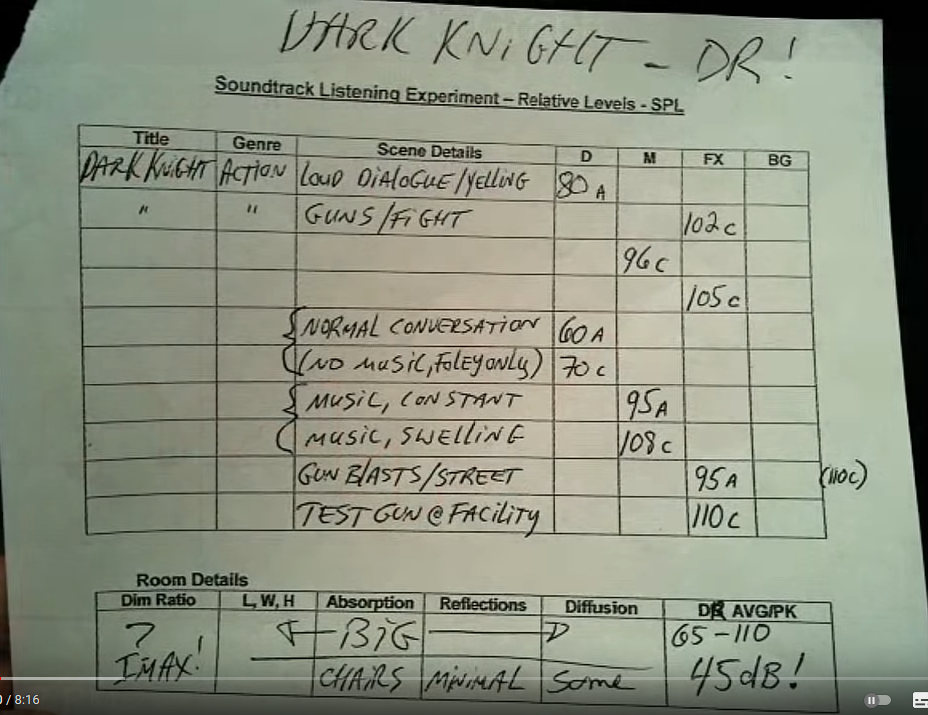 DARK KNiGHT - DR!
Soundtrack Listening Experiment – Relative Levels - SPL
Title Genre Scene Details D M FX BG
DARK KNiGHT ACTiON LOUD DiALOGUE/YELLiNG 80 A
" " GUNS/FiGHT 102 C
96 C
105 C
NORMAL CONVERSATiON 60 A
(NO MUSiC, FOLEY ONLY) 70 C
MUSiC, CONSTANT 95 A
MUSiC, SWELLiNG 108 C
GUN BLASTS/STREET 95 A (110C)
TEST GUN @ FACiLiTY 110 C
Room Details
Dim Ratio L, W, H Absorption Reflections Diffusion DR AVG/PK
? BiG 65-110
IMAX! CHAiRS MiNiMAL Some 45dB!
/ 8:16